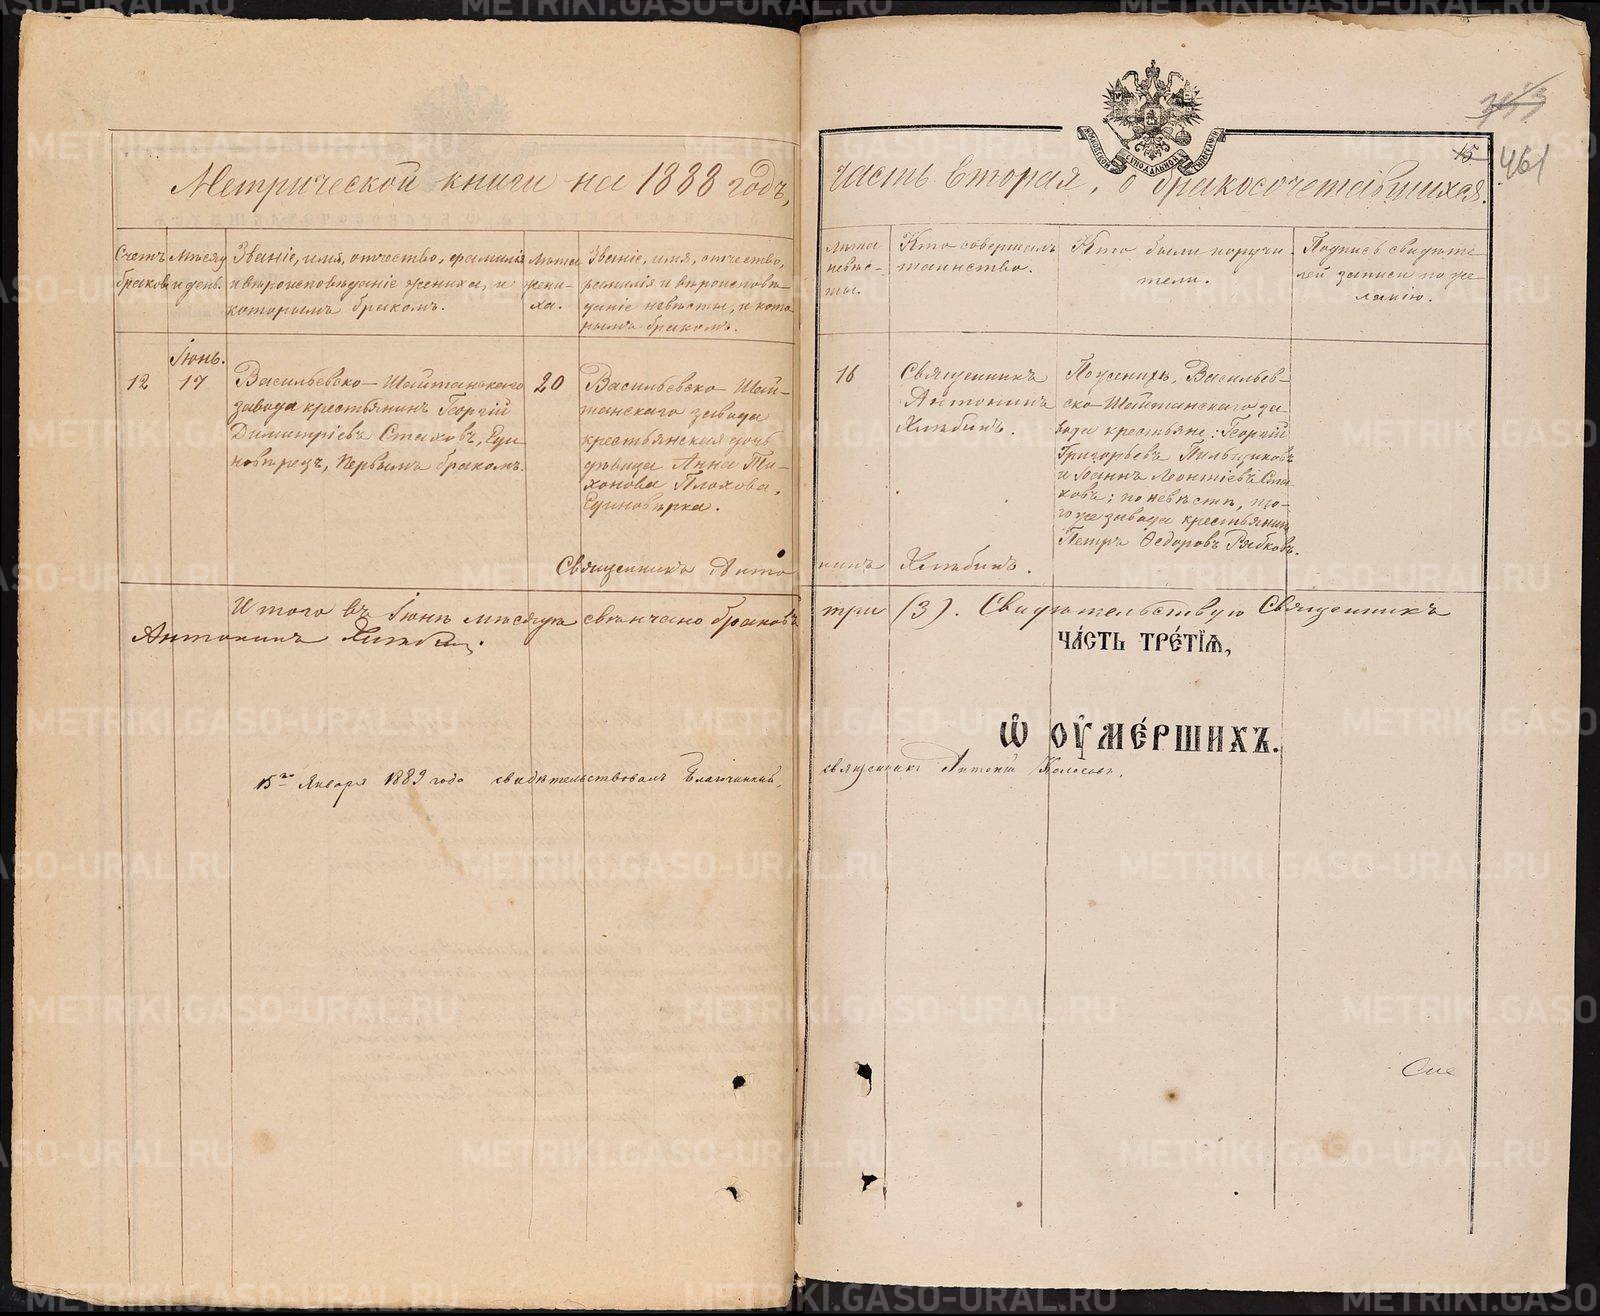 Метрической книги на 1888 годъ,
часть вторая, о бракосочетавшихся.
15
461
Счетъ браковъ
Мѣсяцъ и день.
Званіе, имя, отчество, фамилія
и вѣроисповѣданіе жениха, и
которымъ бракомъ.
Лѣта
жени-
ха.
Званіе, имя, отчество,
фамилія и вѣроисповѣ-
даніе невѣсты, и кото
рымъ бракомъ.
Лѣта
невѣс-
ты.
Кто совершалъ
таинство.
Кто были поручи
тели.
Подпись свидѣте
лей записи по же
ланію.
12
Іюнь.
17
Васильевско-Шайтанскаго
завода крестьянинъ Георгій
Димитріевъ Стаховъ, Еди
новѣрецъ, первымъ бракомъ.
20
Васильевско-Шай-
танскаго завода
крестьянская дочь
дѣвица Анна Ти-
хонова Плохова,
Единовѣрка.
16
Священникъ
Антонинъ
Хлѣбинъ.
По женихѣ, Васильев-
ско-Шайтанскаго за-
вода крестьяне: Георгій
Григорьевъ Пильщиковъ
и Іоаннъ Леонтіевъ Ста
ховъ; по невѣстѣ, то-
го же завода крестьянинъ
Петръ Ѳедоровъ Рябковъ.
Священникъ Анто
нинъ Хлѣбинъ.
Итого въ Іюнѣ мѣсяцѣ свѣнчано браковъ
три (3). Свидѣтельствую Священникъ
Антонинъ Хлѣбинъ.
ЧА́СТЬ ТРЕ́ТІѦ,
Ѡ҆ ОУ҆МЕ́РШИХЪ.
15го Января 1889 года свидѣтельствовалъ Благочинный,
священникъ Антоній Колосовъ.
METRIKI.GASO-URAL.RU